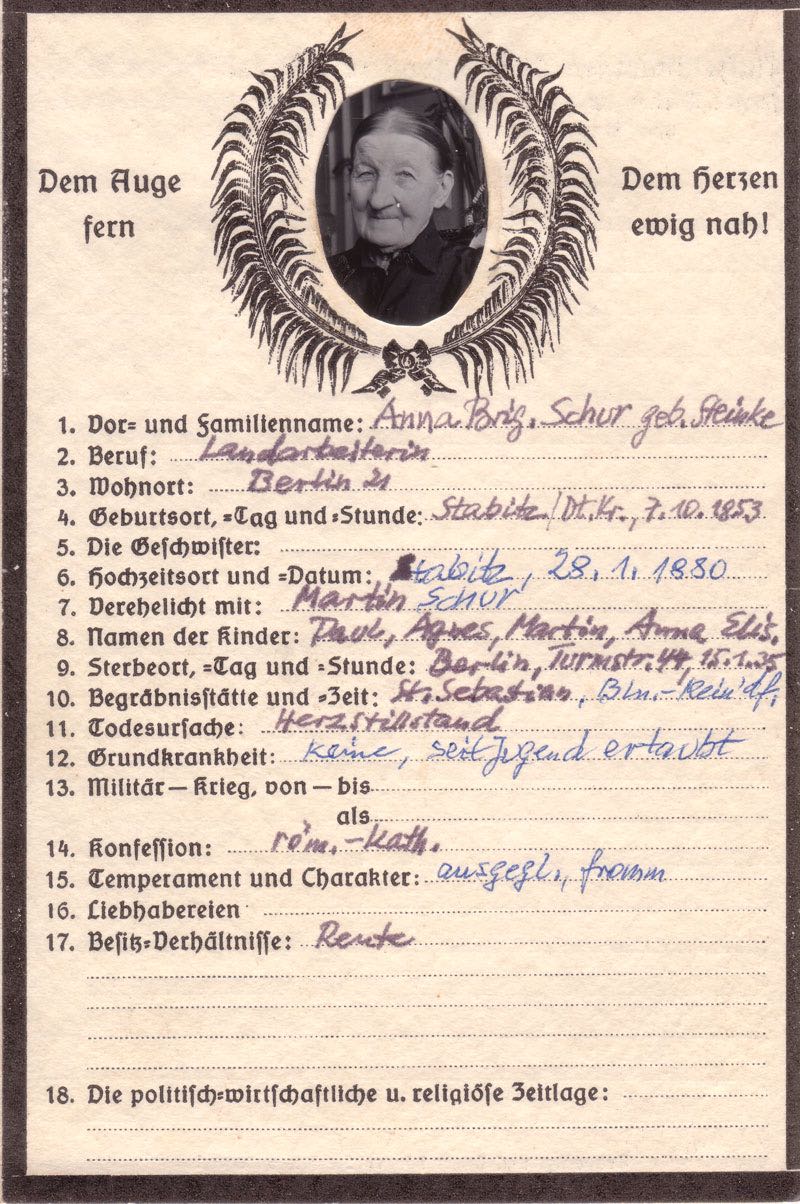 Dem Auge
fern
Dem Herzen
ewig nah!
1. Vor= und Familienname: Anna Brig. Schur geb. Steinke
2. Beruf: Landarbeiterin
3. Wohnort: Berlin 21
4. Geburtsort, =Tag und =Stunde: Stabitz/Dt.Kr., 7.10.1853
5. Die Geschwister:
6. Hochzeitsort und =Datum: Stabitz, 28.1.1880
7. Verehelicht mit: Martin Schur
8. Namen der Kinder: Paul, Agnes, Martin, Anna Elis.
9. Sterbeort, =Tag und =Stunde: Berlin, Turmstr. 44, 15.1.35
10. Begräbnisstätte und =Zeit: St. Sebastian, Bln.-Rein'df.
11. Todesursache: Herzstillstand
12. Grundkrankheit: keine, seit Jugend ertaubt
13. Militär — Krieg, von — bis
als
14. Konfession: röm.-kath.
15. Temperament und Charakter: ausgegl., fromm
16. Liebhabereien
17. Besitz=Verhältnisse: Rente
18. Die politisch=wirtschaftliche u. religiöse Zeitlage: